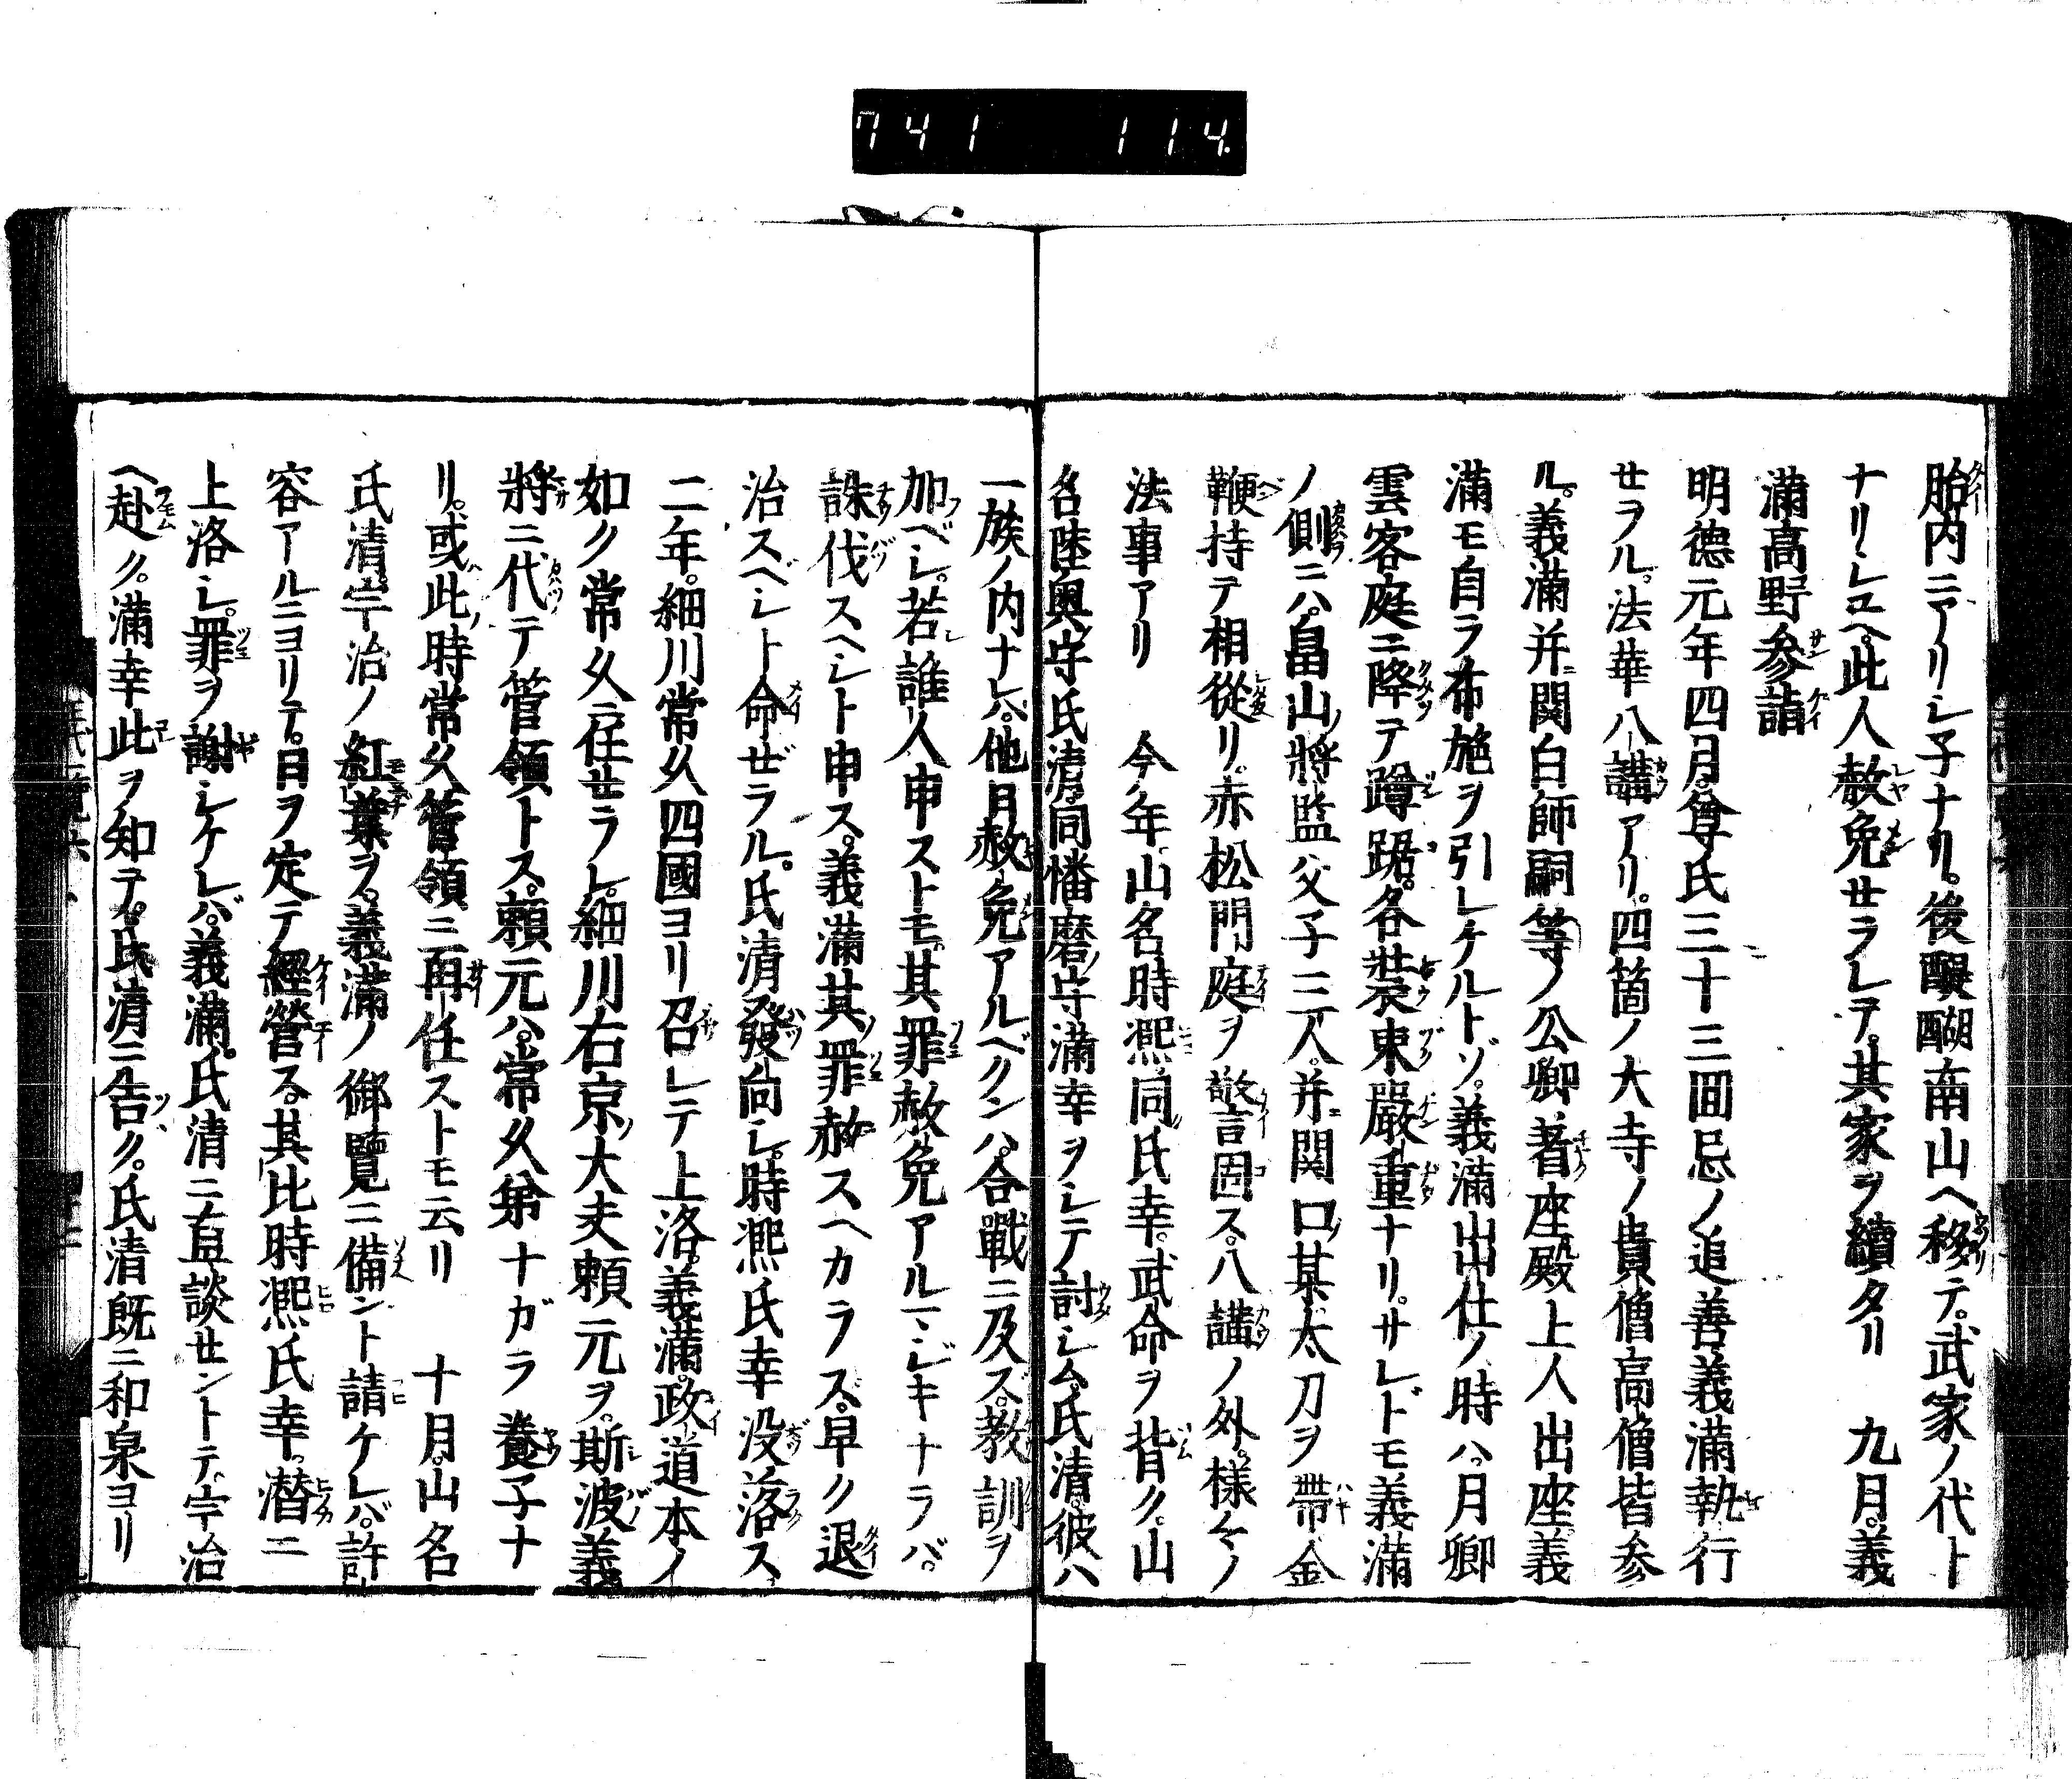 741 114.
胎内ニアリシ子ナリ。後醍醐南山ヘ移テ。武家ノ代ト
ナリシユヘ。此人赦免セラレテ。其家ヲ續タリ 九月。義
滿高野参詣
明德元年四月。尊氏三十三回忌ノ追善義滿執行
セラル。法華八講アリ。四箇ノ大寺ノ貴僧高僧皆参
ル。義滿并関白師嗣等ノ公卿著座殿上人出座義
滿モ自ラ布施ヲ引レケルトゾ。義滿出仕ノ時ハ。月卿
雲客庭ニ降テ蹲踞。各裝束嚴重ナリ。サレドモ義滿
ノ側ニハ。畠山ノ將監父子三人。并関口某太刀ヲ帶金
鞭持テ相從リ。赤松門庭ヲ警固ス。八講ノ外。様々ノ
法事アリ 今年。山名時凞。同氏幸。武命ヲ背ク。山
名陸奥守氏清。同幡磨守滿幸ヲシテ討シム。氏清。彼ハ
一族ノ内ナレバ。他月赦免アルベクンハ。合戰ニ及ズ。教訓ヲ
加ベシ。若誰人申ストモ。其罪赦免アルマジキナラバ。
誅伐スヘシト申ス。義滿其罪赦スヘカラズ。早ク退
治スベシト命ゼラル。氏清發向シ。時凞氏幸没落ス
二年。細川常久四國ヨリ召レテ上洛。義滿。政道本ノ
如ク常久ニ任セラレ。細川右京大夫頼元ヲ。斯波義
將ニ代テ管領トス。頼元ハ。常久弟ナガラ養子ナ
リ。或此時常久管領ニ再任ストモ云リ 十月。山名
氏清。宇治ノ紅葉ヲ。義滿ノ御覽ニ備ント請ケレバ。許
容アルニヨリテ。日ヲ定テ經營ス。其比時凞氏幸。潜ニ
上洛シ。罪ヲ謝シケレバ。義滿。氏清ニ直談セントテ。宇治
ヘ赴ク。滿幸此ヲ知テ。氏清ニ告ク。氏清既ニ和泉ヨリ